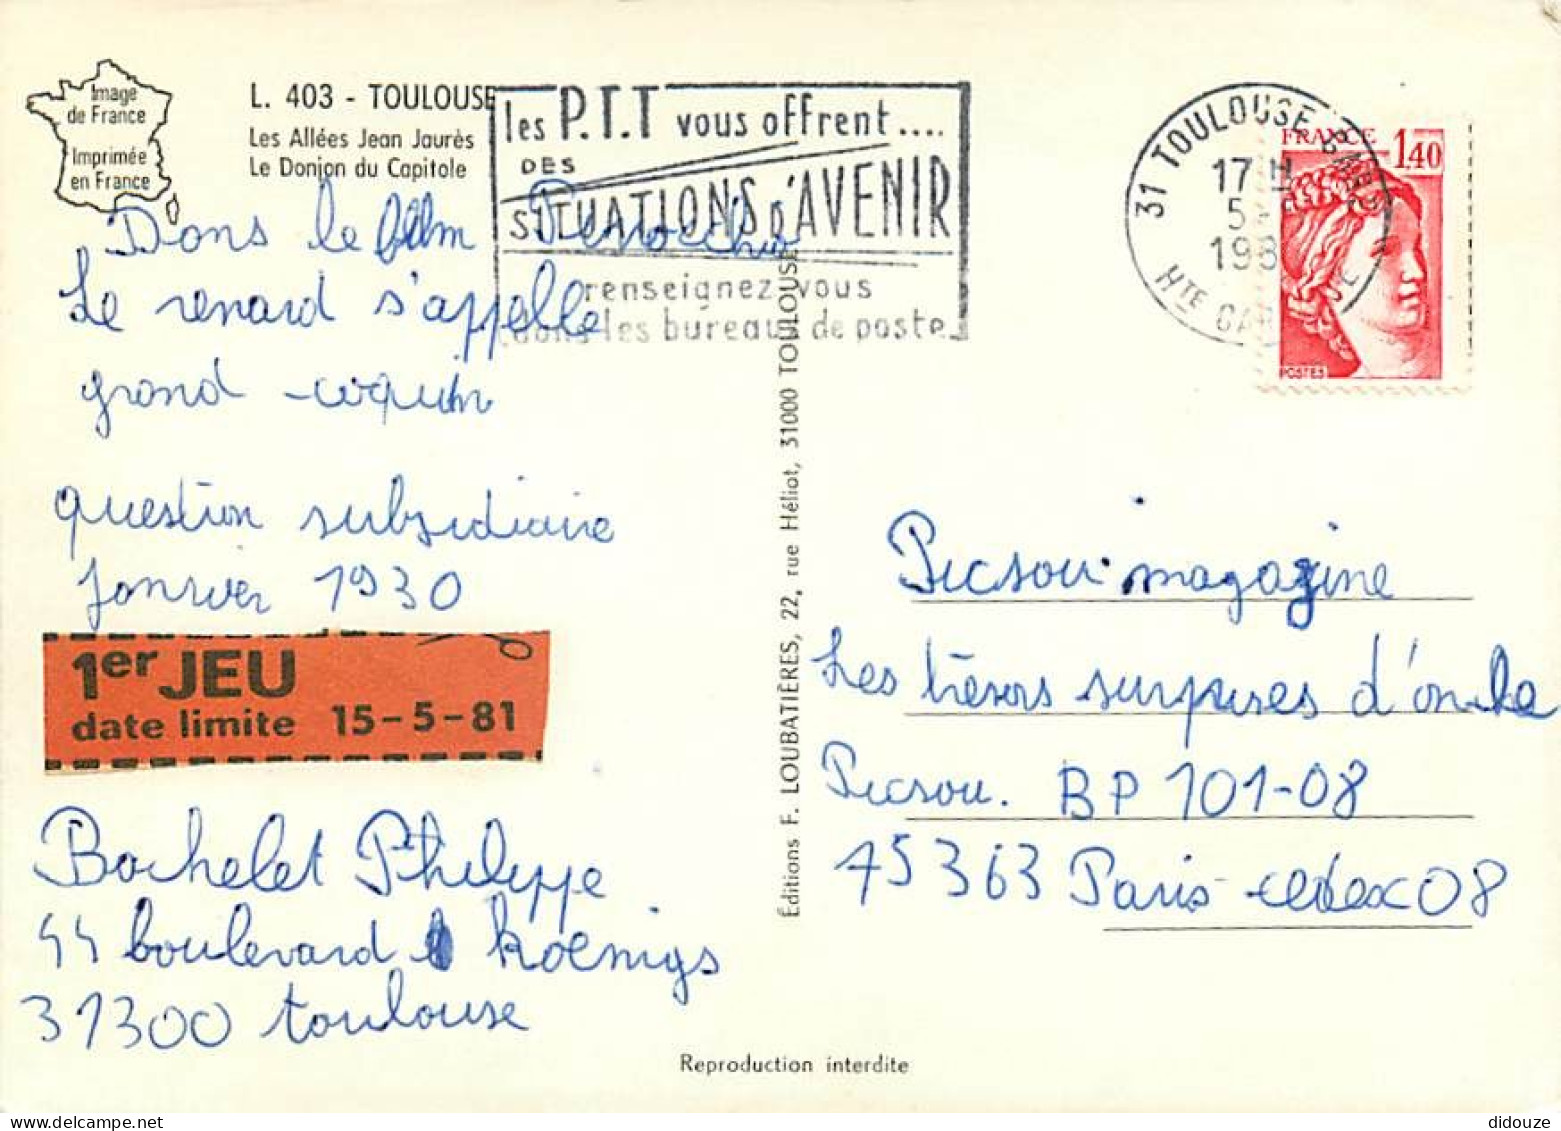 Image
de France
Imprimée
en France
L. 403 - TOULOUSE
Les Allées Jean Jaurès
Le Donjon du Capitole
les P.T.T vous offrent....
DES
SITUATIONS d'AVENIR
renseignez vous
dans les bureaux de poste
31 TOULOUSE
17 H
5
198
Hte GAR
FRANCE 1,40
POSTES
Dans le film Pinocchio
Le renard s'appelle
grand coquin
question subsidiaire
Janvier 1930
1er JEU
date limite 15-5-81
Bachelet Philippe
44 boulevard Koenigs
31300 toulouse
Éditions F. LOUBATIÈRES, 22, rue Héliot, 31000 TOULOUSE
Picsou magazine
Les trésors surprises d'oncle
Picsou. BP 101-08
75363 Paris cedex 08
Reproduction interdite
didouze